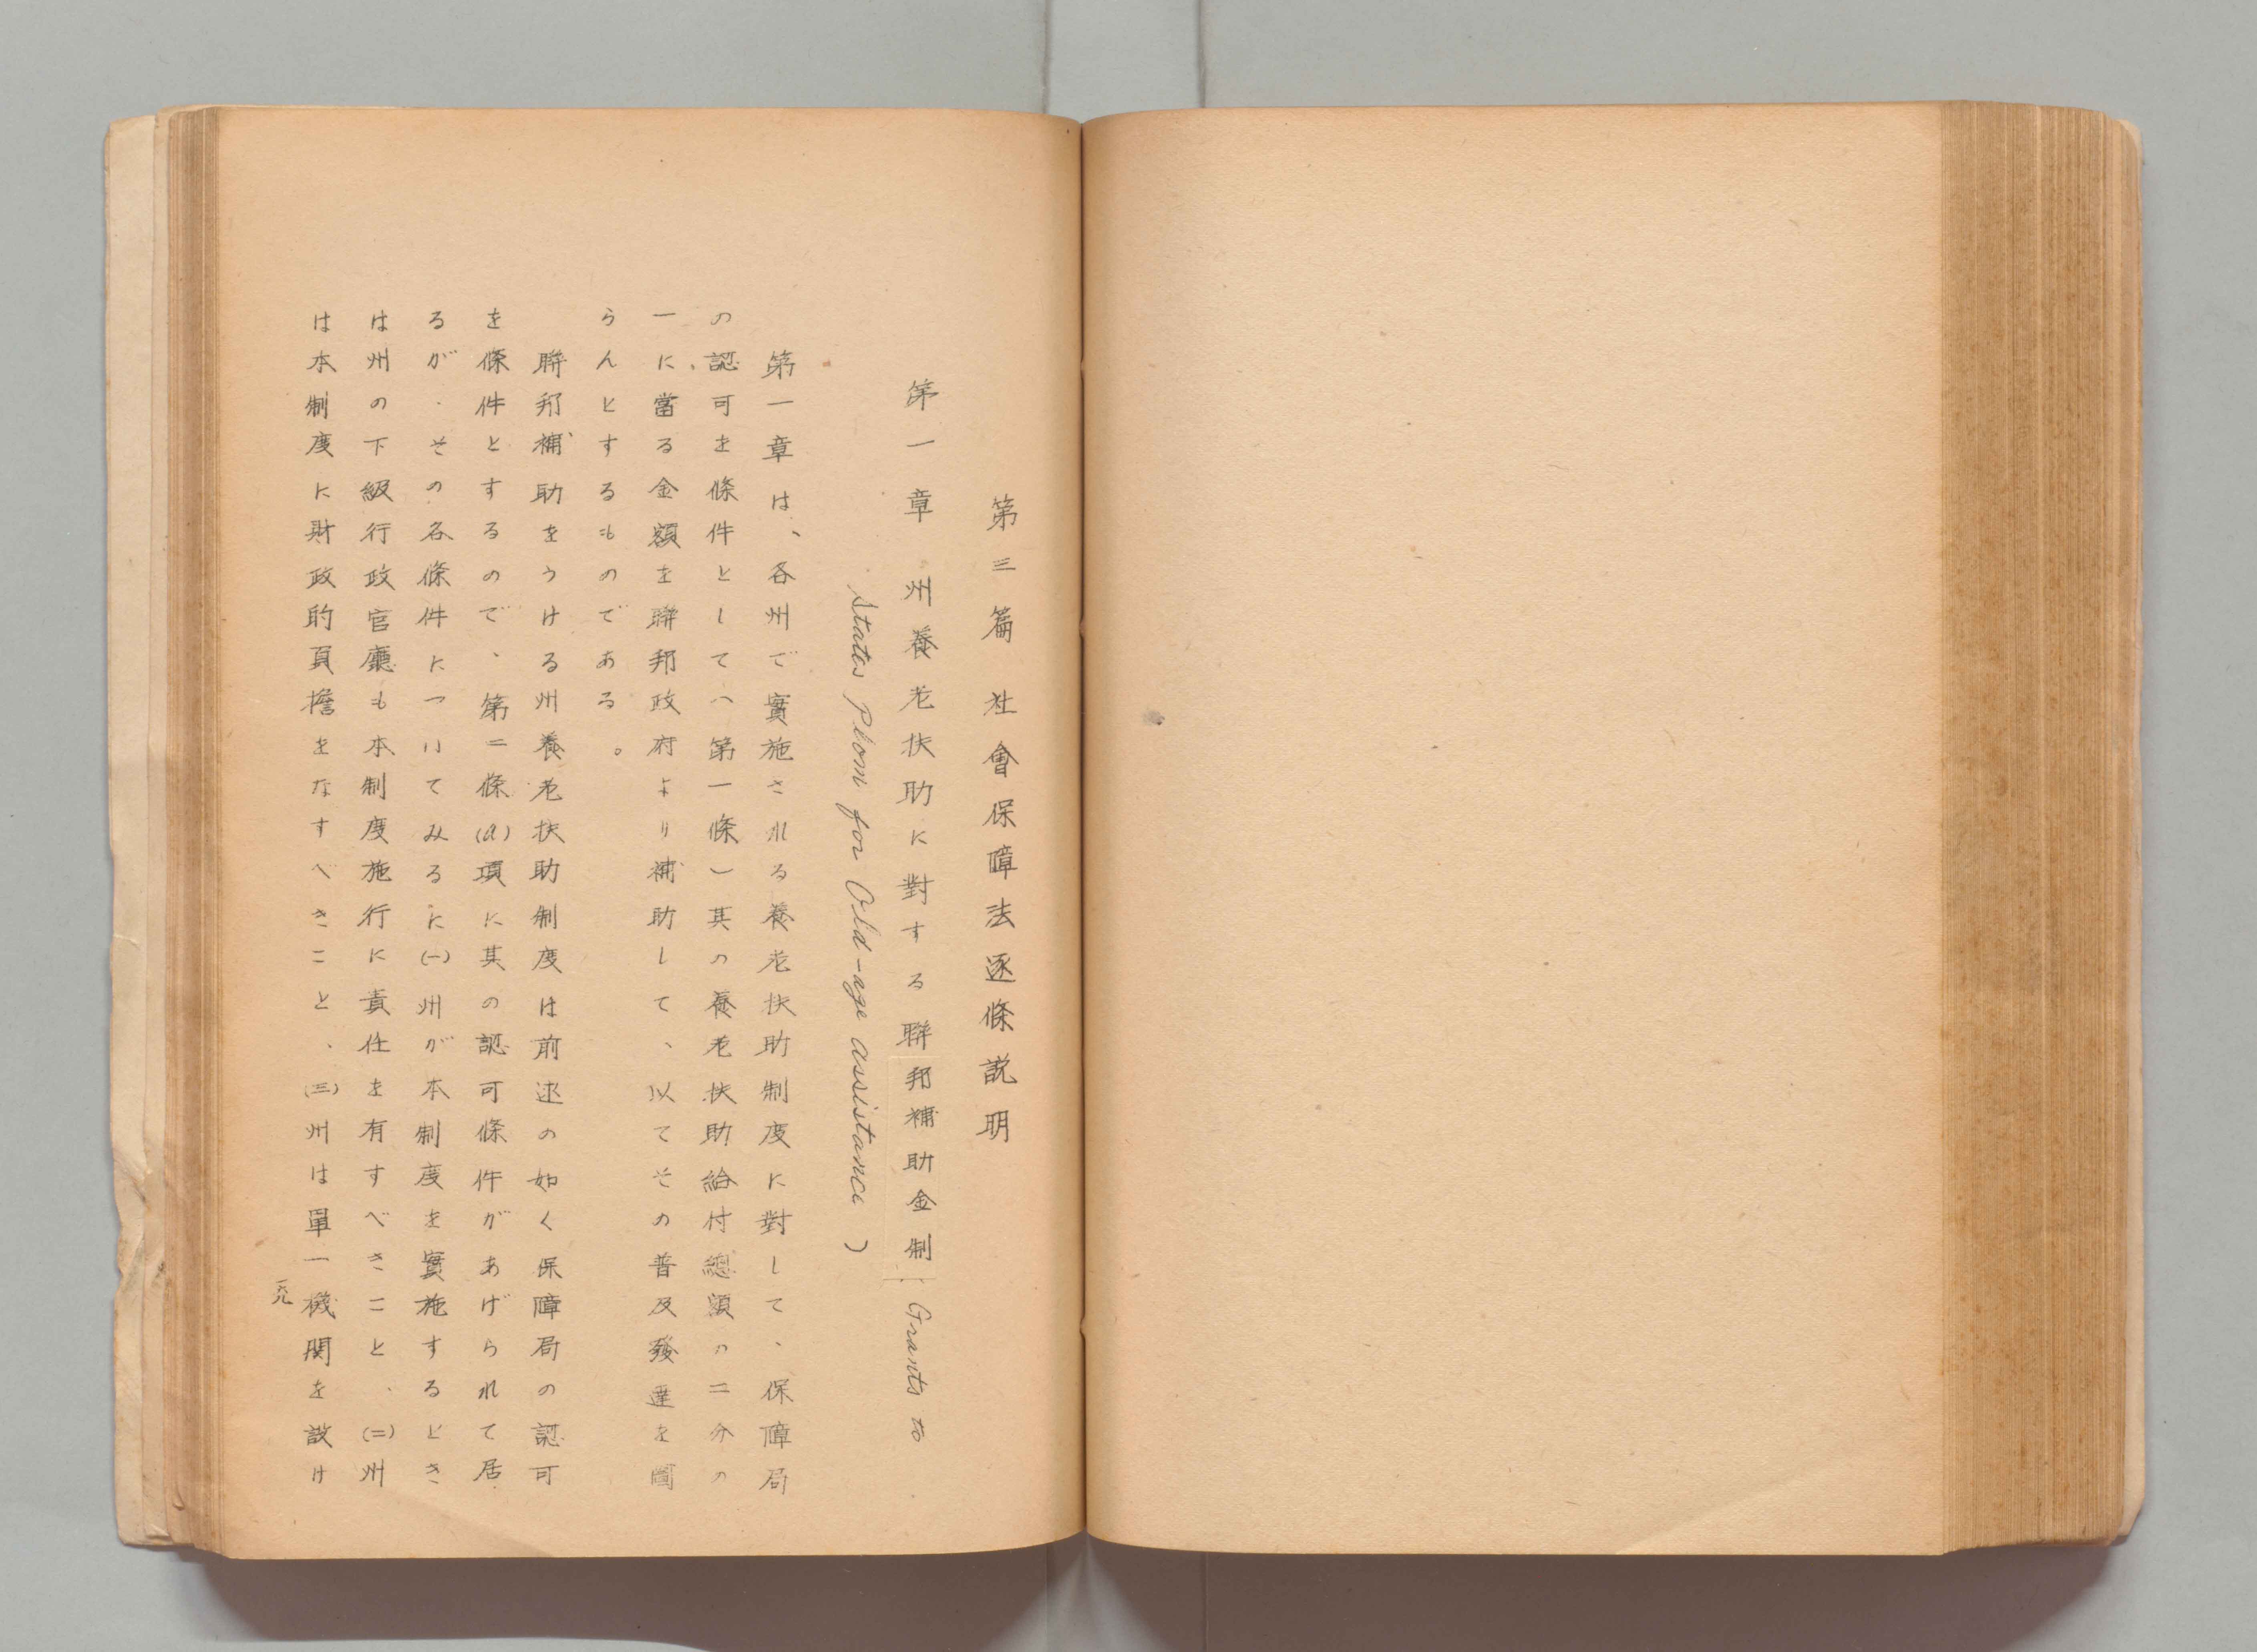 第三篇 社會保障法逐條説明
第一章 州養老扶助に對する聯邦補助金制 Grants to
States Plom for Old-age assistance)
第一章は、各州で實施される養老扶助制度に對して、保障局
の認可を條件として(第一條)其の養老扶助給付總額の二分の
一に當る金額を聯邦政府より補助して、以てその普及發達を圖
らんとするものである。
聯邦補助をうける州養老扶助制度は前述の如く保障局の認可
を條件とするので、第二條(a)項に其の認可條件があげられて居
るが、その各條件についてみるに(一)州が本制度を實施するとき
は州の下級行政官廳も本制度施行に責任を有すべきこと、(二)州
は本制度に財政的負擔をなすべきこと、(三)州は單一機関を設け